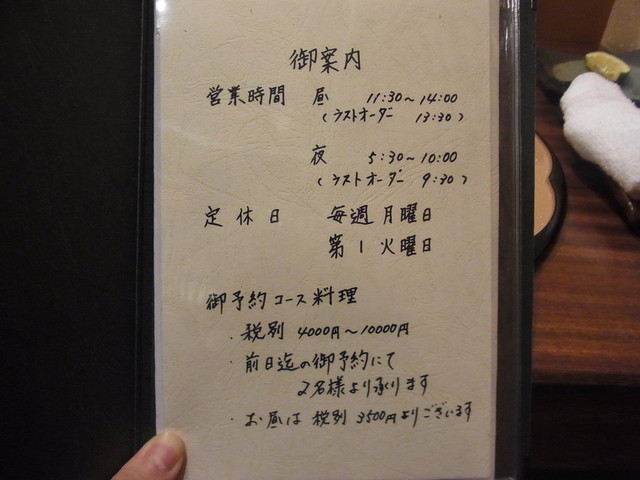 御案内
営業時間 昼 11:30～14:00
(ラストオーダー 13:30)
夜 5:30～10:00
(ラストオーダー 9:30)
定休日 毎週月曜日
第1火曜日
御予約コース料理
・税別 4000円～10000円
・前日迄の御予約にて
2名様より承ります
・お昼は 税別 3500円よりございます